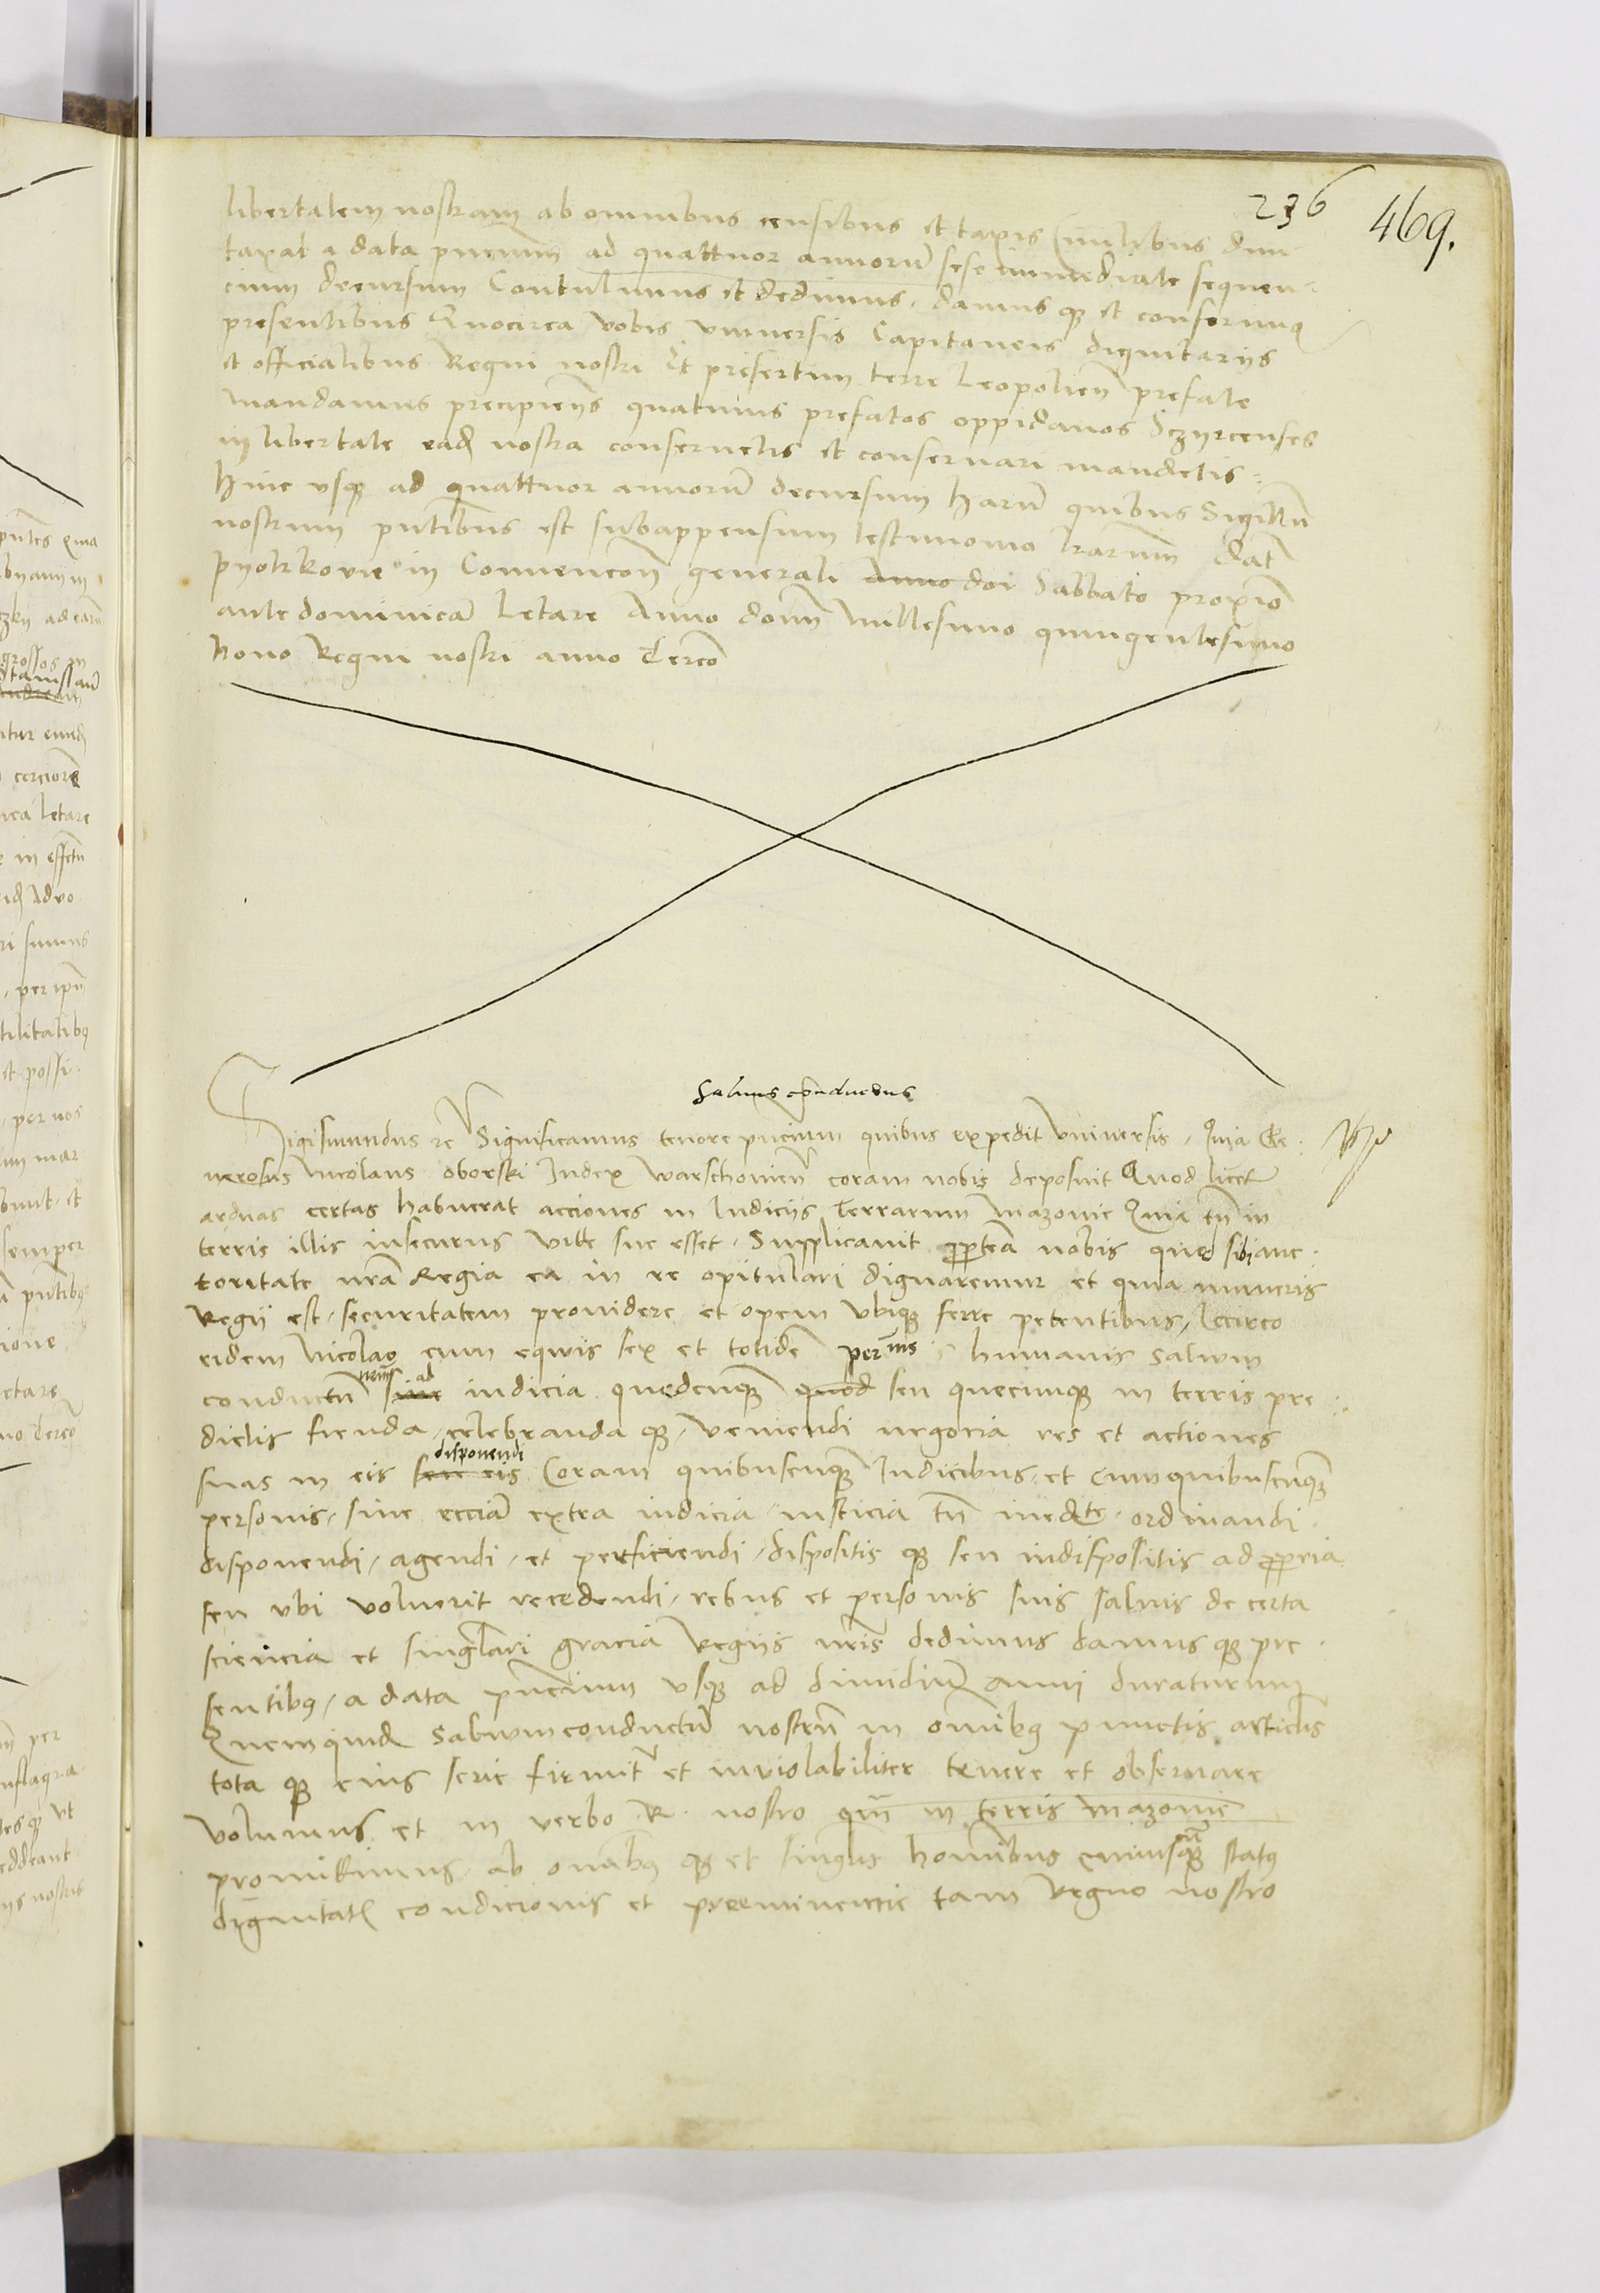 236 469.
libertatem nostram ab omnibus censibus et taxis Civilibus dun
taxat a data pncium ad quattuor annorum sese immediate sequen
cium decursum Contulimus et dedimus. damus qz et conferimus
presentibus Quocirca vobis vniversis Capitaneis dignitariis
et officialibus Regni nostri Et presertim terre Leopolien prefate
mandamus precipiens quatinus prefatos oppidanos Sczyrcenses
in libertate eadem nostra conservetis et conservari mandetis
hinc vsqz ad quattuor annorum decursum harum quibus Sigillum
nostrum pntibus est subappensum testimonio lrarum Dat
pyotrkovie in Convencon generali Anno doi Sabbato proximo
ante dominicam Letare Anno domi Millesimo quingentesimo
Nono Regni nostri anno Tercio
Salvus conductus
Sigismundus rc Significamus tenore pncium quibus expedit Vniversis. Quia Ge
nerosus Nicolaus oborski Iudex warschovien coram nobis deposuit Quod licet
arduas certas habuerat acciones in Iudiciis Terrarum Mazovie Quia tn in
terris illis insecurus vitte sue esset. Supplicavit propterea nobis qued sibi auc
toritate nra Regia ea in re opitulari dignaremur et quia muneris
Regii est. securitatem providere et opem vbiqz ferre petentibus, Iccirco
eidem Nicolao cum eqwis sex et totidem personis humanis salwm
conductum sive ad iudicia quedcunqz quod seu quecunqz in terris pre
dictis fienda. celebranda qz. veniendi negocia res et actiones
suas in eis sere eis disponendi Coram quibuscunqz Iudicibus. et cum quibuscunqz
personis. sive ecciam extra iudicia. iusticia tn medte. ordinandi
disponendi. agendi. et perficiendi. dispositis qz seu indispositis ad propria
seu vbi voluerit recedendi. rebus et personis suis salvis de certa
sciencia et singlari gracia Regiis nris dedimus damus qz pre
sentibus. a data pncium vsqz ad dimidium Anni duraturum
Quemquidem Salvumconductum nostrum in omibus punctis articlis
tota qz eius serie firmiter et inviolabiliter tenere et observare
volumus et in verbo R. nostro qm in terris Mazovie
promittimus. ab omibus qz et singlis hominibus cuiuscunqz status
dignitatis condicionis et preeminencie tam Regno nostro